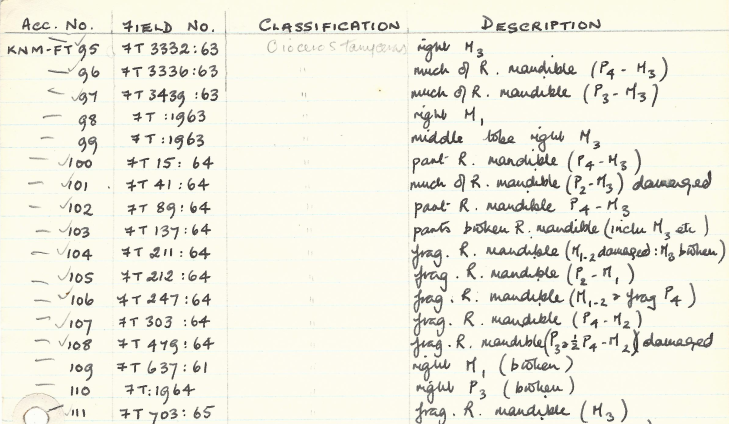 ACC. NO. FIELD NO. CLASSIFICATION DESCRIPTION
KNM-FT 95 7T 3332:63 right M3
— 96 7T 3336:63 " much of R. mandible (P4 - M3)
— 97 7T 3439:63 " much of R. mandible (P3 - M3)
— 98 7T :1963 " right M1
— 99 7T :1963 " middle lobe right M3
— 100 7T 15: 64 " part R. mandible (P4-M3)
— 101 7T 41:64 " much of R. mandible (P2-M3) damaged
— 102 7T 89:64 " part R. mandible P4-M3
— 103 7T 137:64 " parts broken R. mandible (inclu M3 etc)
— 104 7T 211:64 " frag. R. mandible (M1-2 damaged: M3 broken)
— 105 7T 212:64 " frag. R. mandible (P2-M1)
— 106 7T 247:64 " frag. R. mandible (M1-2 & frag P4)
— 107 7T 303:64 " frag. R. mandible (P4-M2)
— 108 7T 479:64 " frag. R. mandible (P3 & ½ P4-M2) damaged
— 109 7T 637:61 " right M1 (broken)
— 110 7T:1964 " right P3 (broken)
111 7T 703:65 " frag. R. mandible (M3)